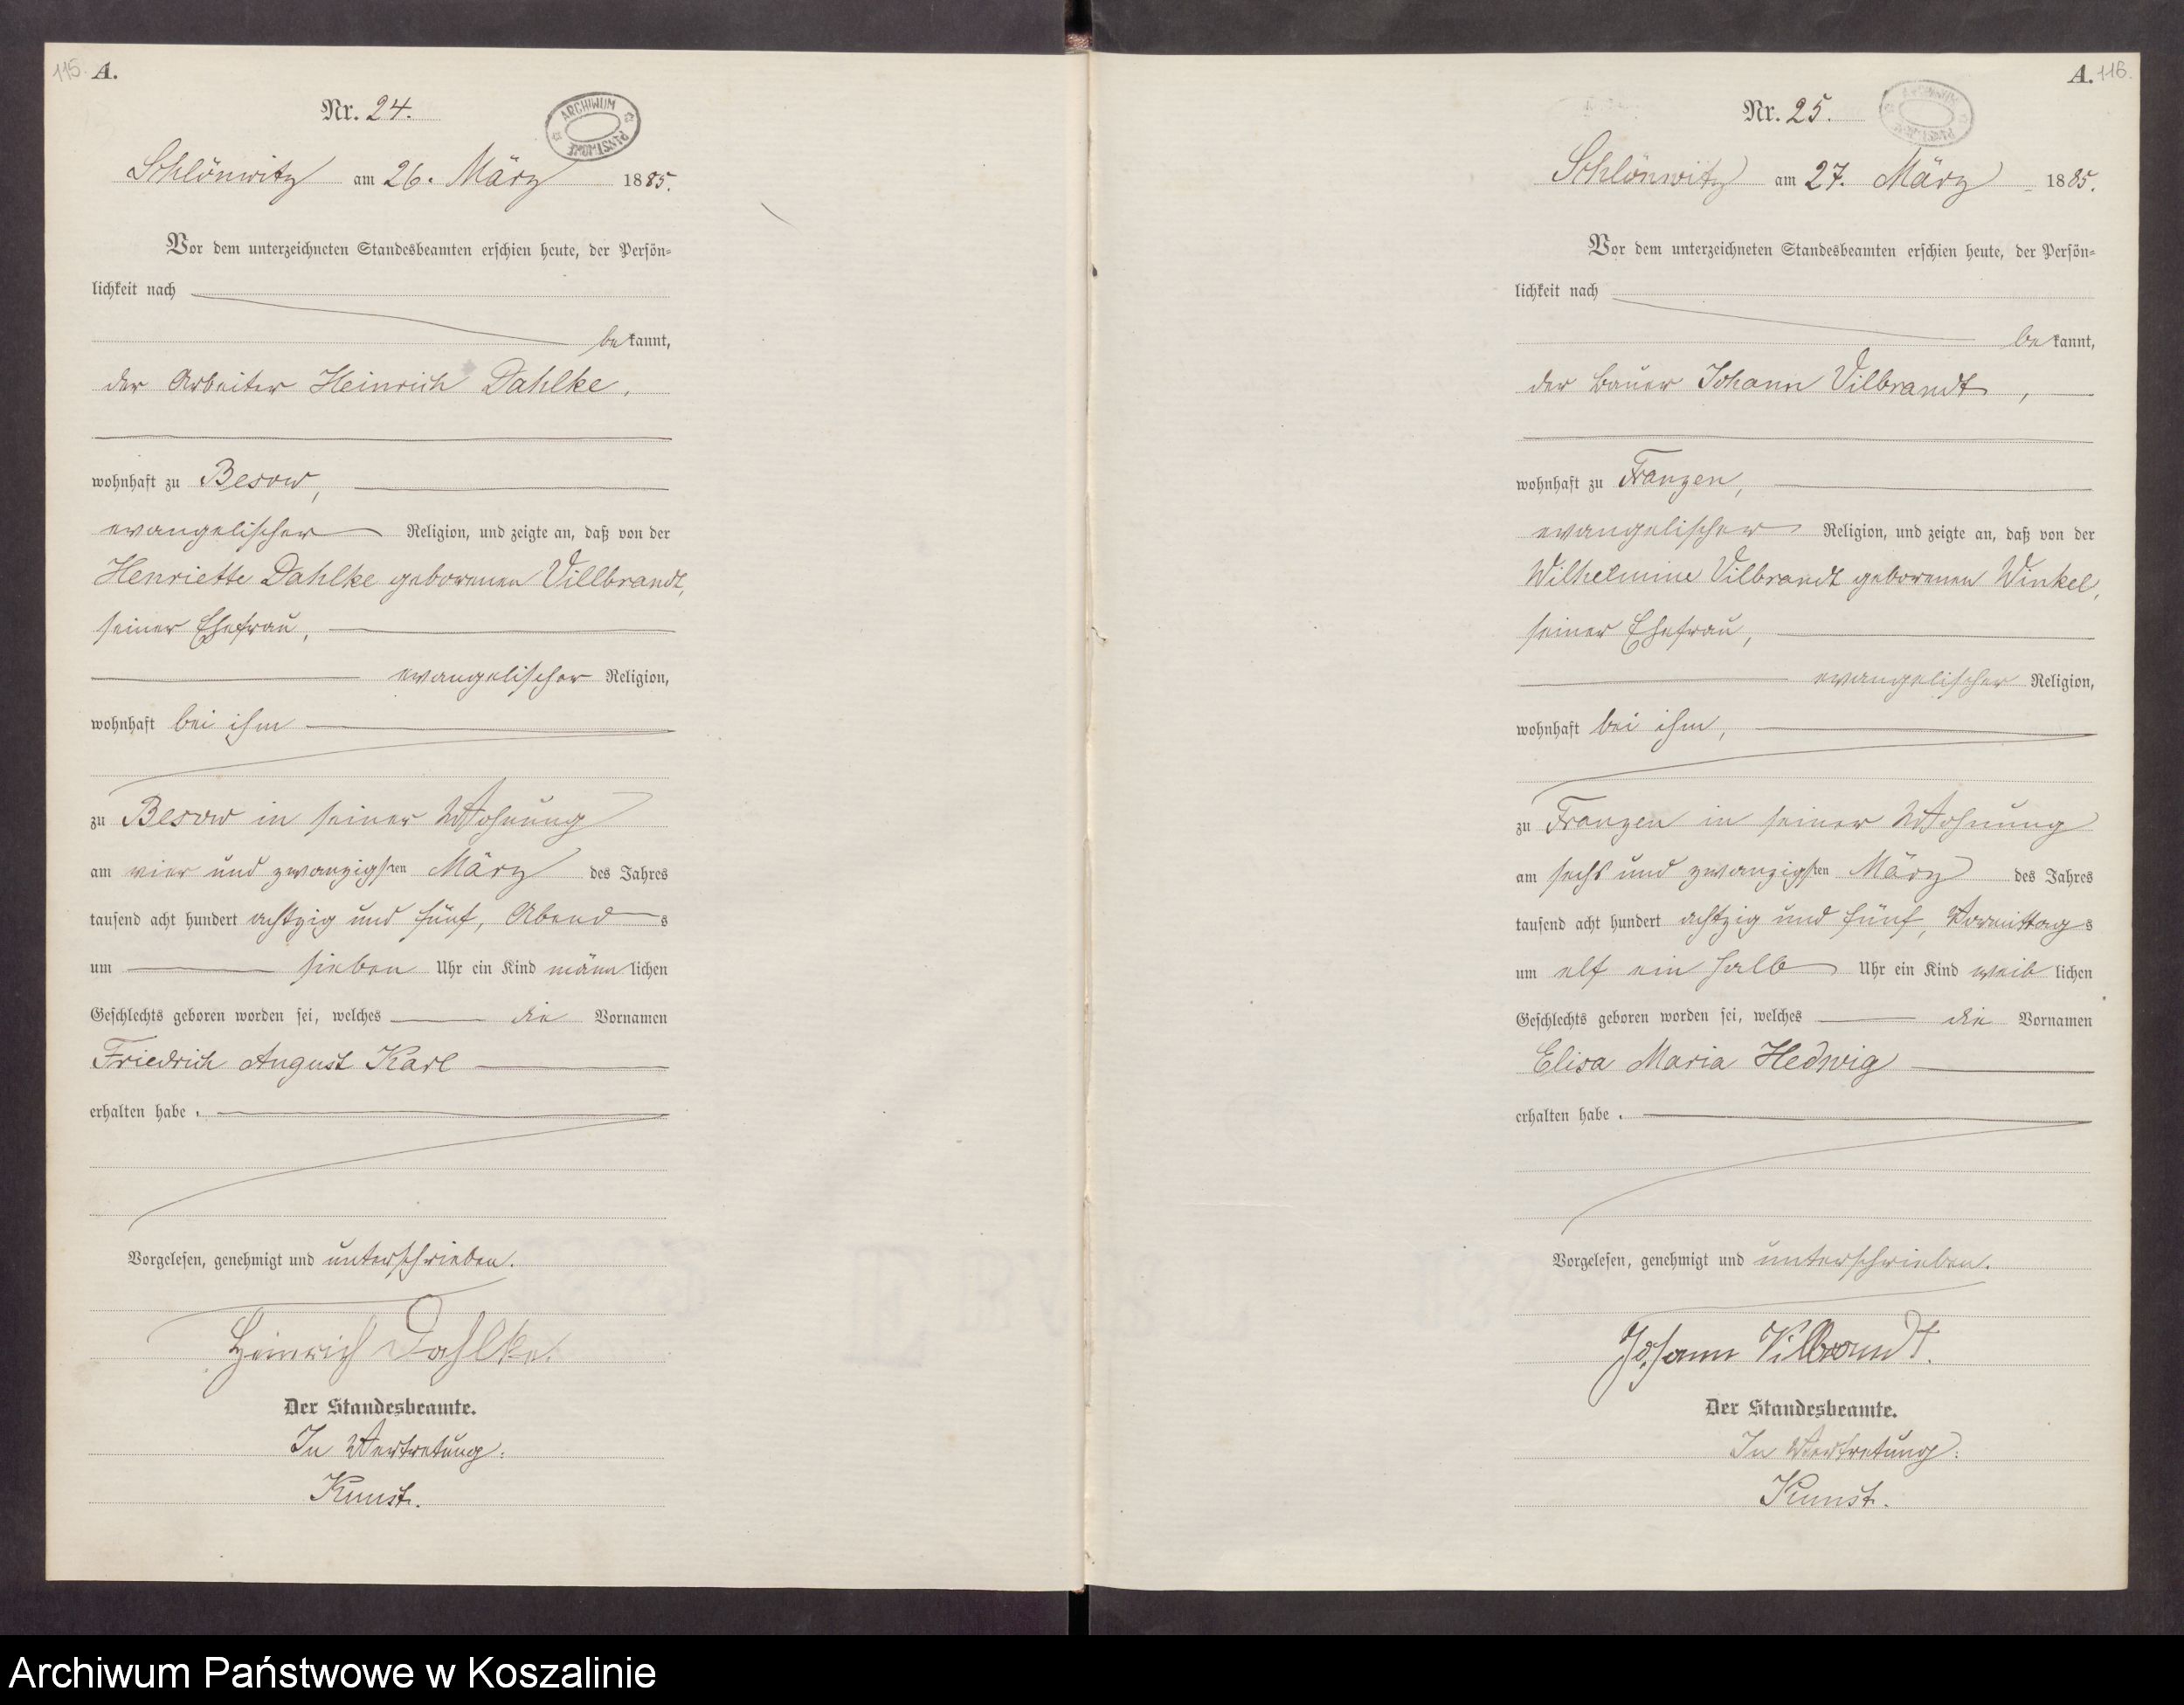 115. A.
Nr. 24.
ARCHIWUM PAŃSTWOWE
Schlönwitz am 26. März 1885.
Vor dem unterzeichneten Standesbeamten erschien heute, der Persön-
lichkeit nach
bekannt,
der Arbeiter Heinrich Dahlke,
wohnhaft zu Besow,
evangelischer Religion, und zeigte an, daß von der
Henriette Dahlke geborenen Villbrandt,
seiner Ehefrau,
evangelischer Religion,
wohnhaft bei ihm
zu Besow in seiner Wohnung
am vier und zwanzigsten März des Jahres
tausend acht hundert achtzig und fünf, Abends
um sieben Uhr ein Kind männlichen
Geschlechts geboren worden sei, welches die Vornamen
Friedrich August Karl
erhalten habe.
Vorgelesen, genehmigt und unterschrieben.
Heinrich Dahlke.
Der Standesbeamte.
In Vertretung:
Kunst.
A. 116.
Nr. 25.
Schlönwitz am 27. März 1885.
Vor dem unterzeichneten Standesbeamten erschien heute, der Persön-
lichkeit nach
bekannt,
der Bauer Johann Vilbrandt,
wohnhaft zu Franzen,
evangelischer Religion, und zeigte an, daß von der
Wilhelmine Vilbrandt geborenen Winkel,
seiner Ehefrau,
evangelischer Religion,
wohnhaft bei ihm,
zu Franzen in seiner Wohnung
am sechs und zwanzigsten März des Jahres
tausend acht hundert achtzig und fünf, Vormittags
um elf ein halb Uhr ein Kind weiblichen
Geschlechts geboren worden sei, welches die Vornamen
Elisa Maria Hedwig
erhalten habe.
Vorgelesen, genehmigt und unterschrieben.
Johann Vilbrandt.
Der Standesbeamte.
In Vertretung:
Kunst.
Archiwum Państwowe w Koszalinie